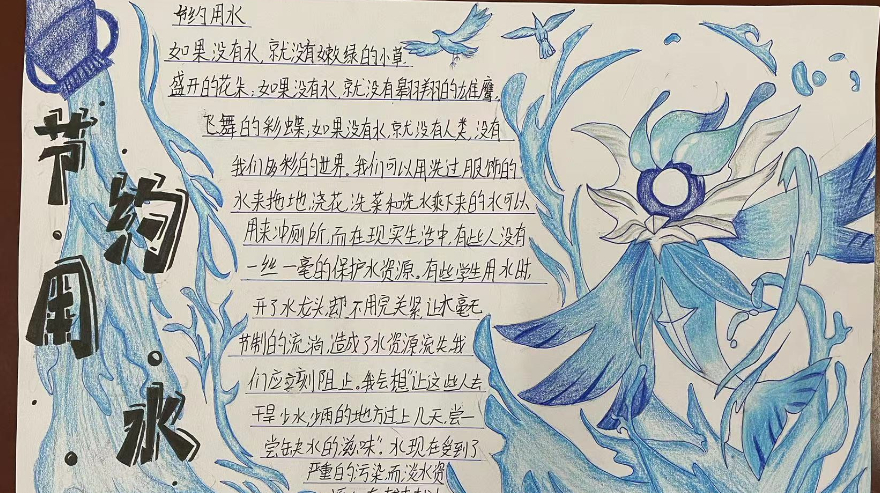 节约用水
节约用水
如果没有水,就没有嫩绿的小草
盛开的花朵,如果没有水,就没有翱翔的雄鹰,
飞舞的彩蝶,如果没有水,就没有人类,没有
我们多彩的世界。我们可以用洗过服饰的
水来拖地,浇花,洗菜和洗水剩下来的水可以
用来冲厕所,而在现实生活中,有些人没有
一丝一毫的保护水资源。有些学生用水时,
开了水龙头,却不用完关紧,让水毫无
节制的流淌,造成了水资源流失,我
们应立刻阻止。我会想“让这些人去
干旱少水,少雨的地方过上几天,尝一
尝缺水的滋味”。水现在受到了
严重的污染,而淡水资